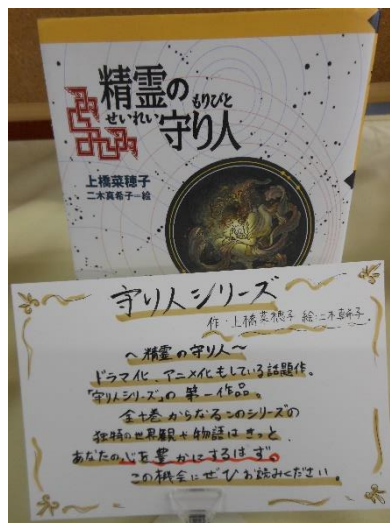 精霊の
せいれい
もりびと
守り人
上橋菜穂子
二木真希子=絵
守り人シリーズ
作・上橋菜穂子 絵・二木真希子
〜精霊の守り人〜
ドラマ化、アニメ化もしている話題作。
「守り人シリーズ」の第一作品。
全十巻からなるこのシリーズの
独特の世界観や物語はきっと、
あなたの心を豊かにするはず。
この機会にぜひお読みください。